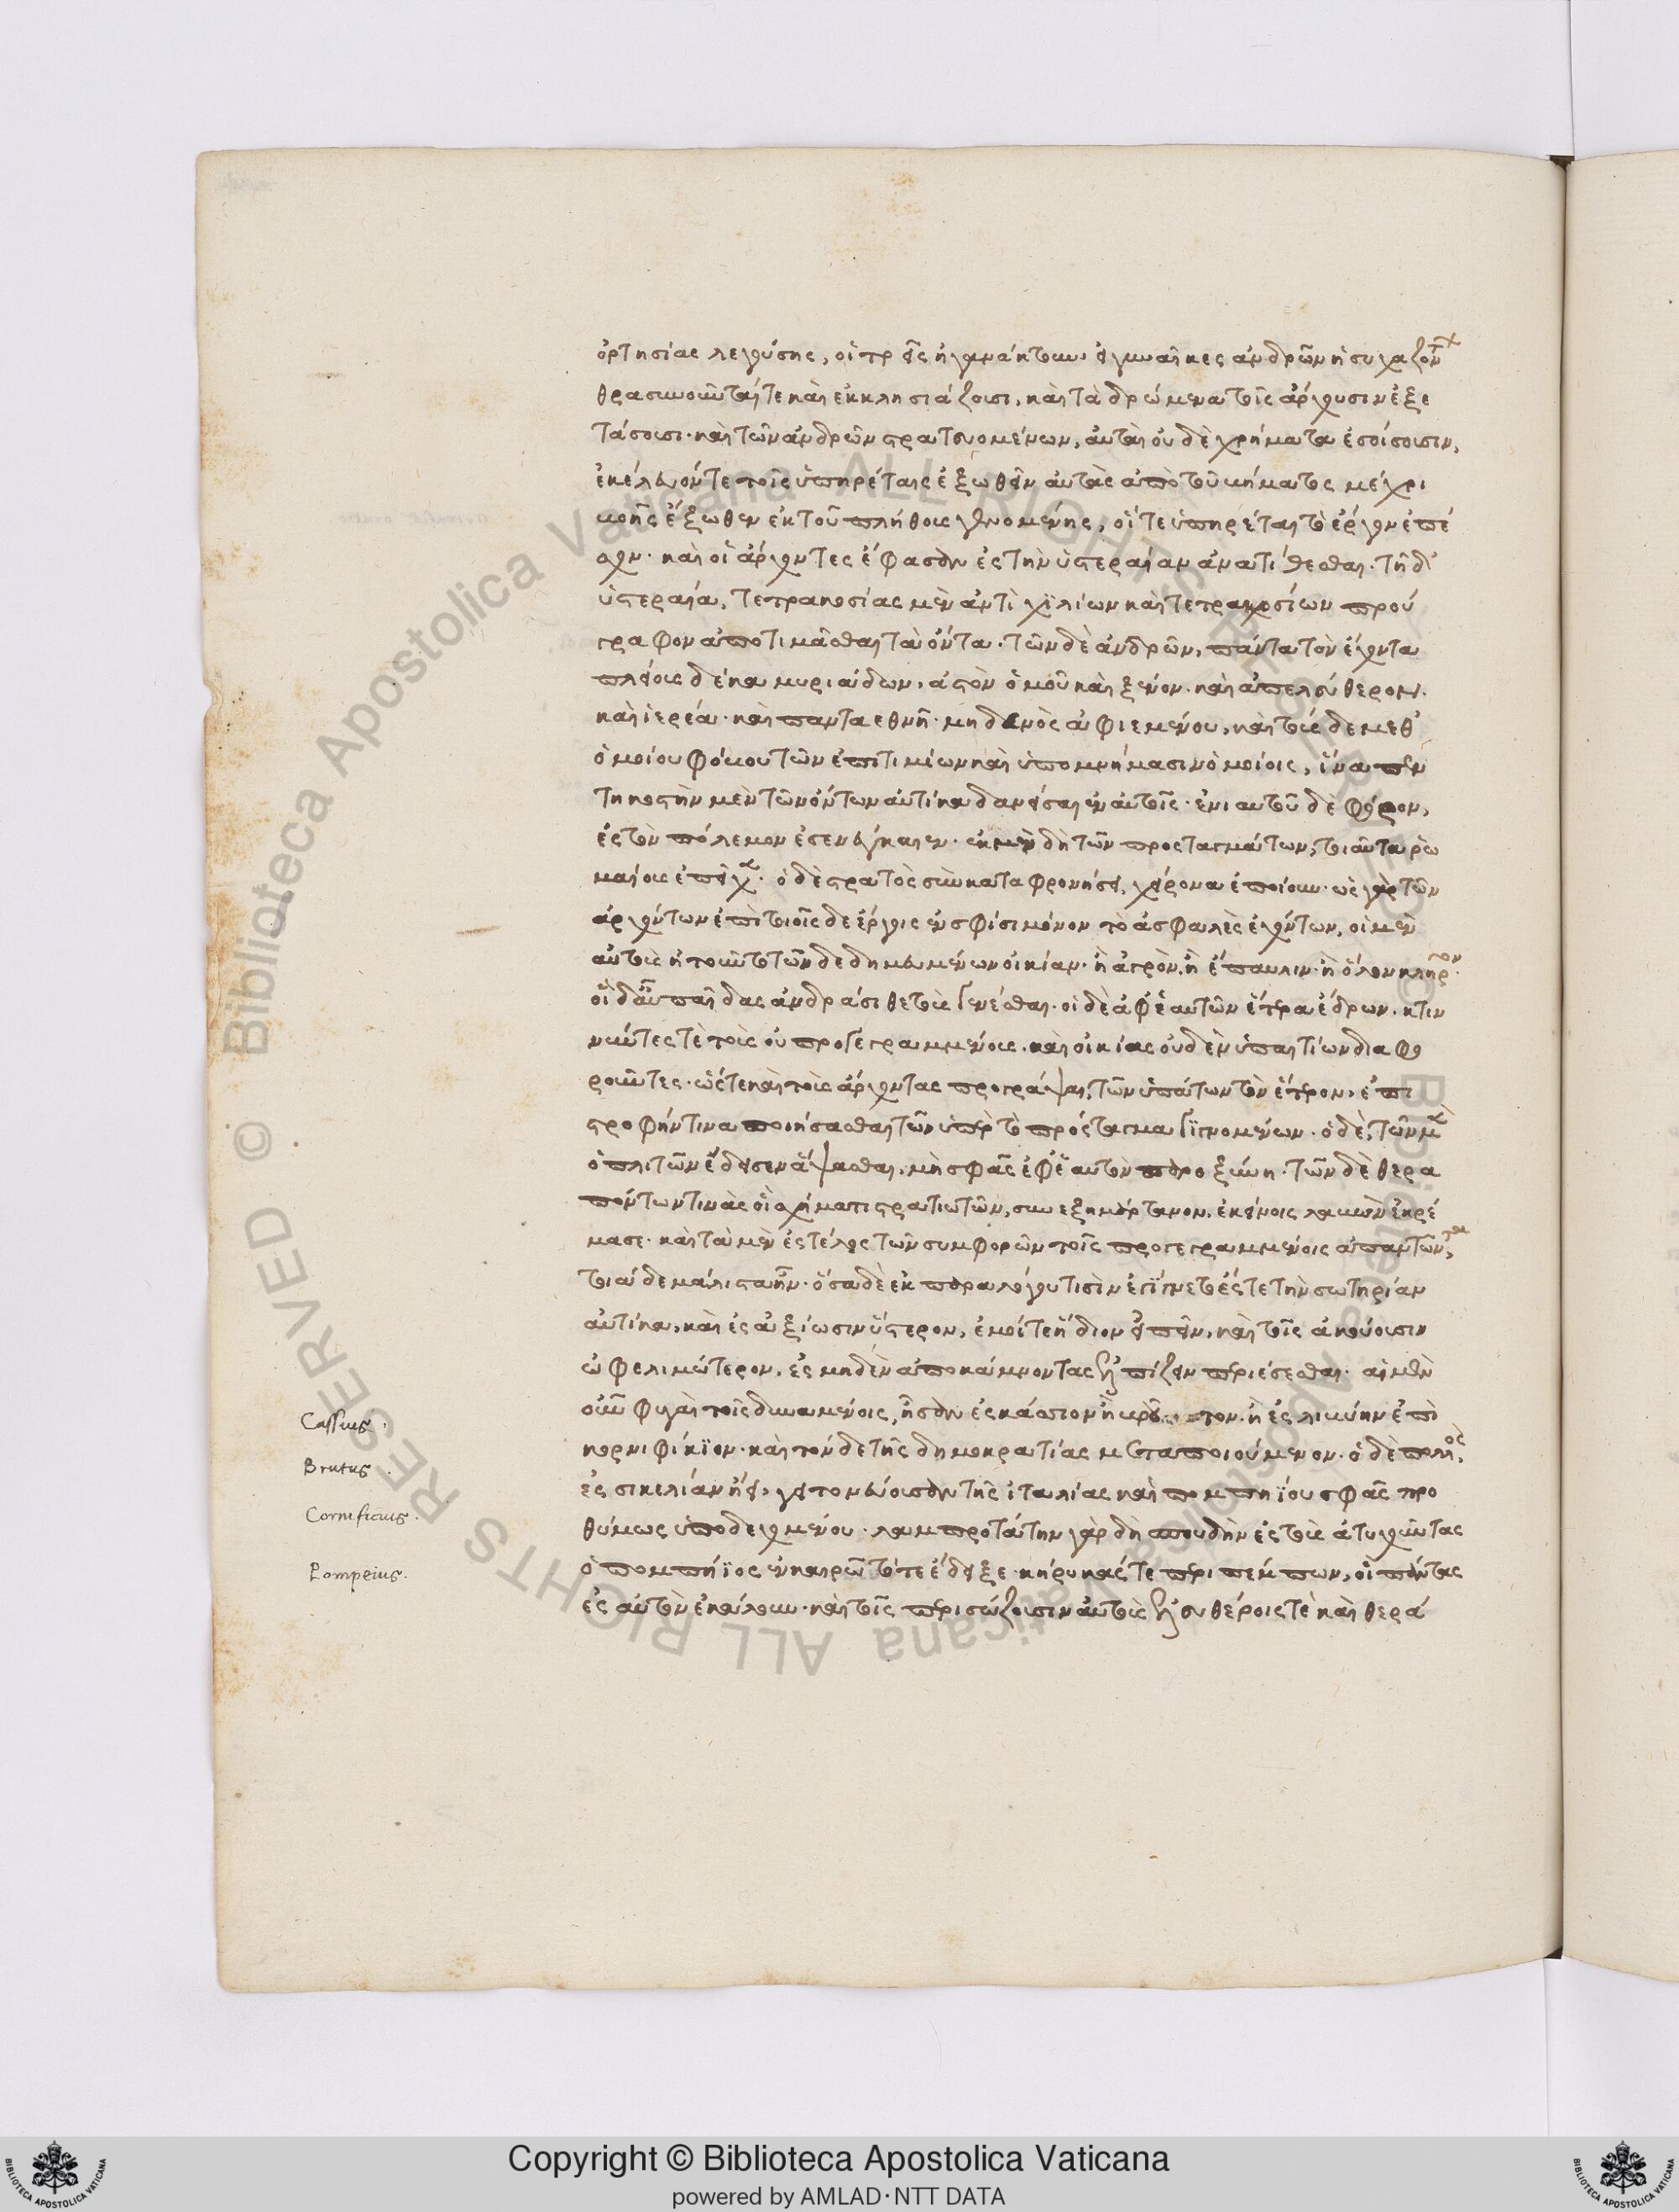 ὁρτησίας λεγούσης, οἱ τρεῖς ἠγανάκτουν. εἰ γυναῖκες ἀνδρῶν ἡσυχαζόντων
θρασυνοῦνταί τε καὶ ἐκκλησιάζουσι. καὶ τὰ δρώμενα τοῖς ἄρχουσιν ἐξε
τάσουσι. καὶ τῶν ἀνδρῶν στρατευομένων, αὐταὶ οὐδὲ χρήματα ἐσοίσουσιν,
ἐκέλευόν τε τοῖς ὑπηρέταις ἐξωθεῖν αὐτὰς ἀπὸ τοῦ βήματος μέχρι
βοῆς ἔξωθεν ἐκ τοῦ πλήθους γενομένης, οἵ τε ὑπηρέται τὸ ἔργον ἐπέ
σχον. καὶ οἱ ἄρχοντες ἔφασαν ἐς τὴν ὑστεραίαν ἀνατίθεσθαι. τῇ δ'
ὑστεραία, τετρακοσίας μὲν ἀντὶ χιλίων καὶ τετρακοσίων πρού
γραφον ἀποτιμᾶσθαι τὰ ὄντα. τῶν δὲ ἀνδρῶν, πάντα τὸν ἔχοντα
πλείους δέκα μυριάδων. ἀστὸν ὁμοῦ καὶ ξένον. καὶ ἀπελεύθερον.
καὶ ἱερέα. καὶ πανταεθνῆ. μηδενὸς ἀφιεμένου, καὶ τούσδε μεθ'
ὁμοίου φόβου τῶν ἐπιτιμίων καὶ ὑπομνήμασιν ὁμοίοις, ἵνα πεν
τηκοστὴν μὲν τῶν ὄντων αὐτίκα δανείσαιεν αὐτοῖς. ἐνιαυτοῦ δὲ φόρον,
ἐς τὸν πόλεμον ἐσενέγκαιεν. ἐκ μὲν δὴ τῶν προσταγμάτων, τοιαῦτα ῥω
μαίους ἐπεῖχε. ὁ δὲ στρατὸς σὺν καταφρονήσει, χείρονα ἐποίουν. ὡς γὰρ τῶν
ἀρχόντων ἐπὶ τοιοῖσδε ἔργοις ἐν σφίσι μόνον τὸ ἀσφαλὲς ἐχόντων, οἱ μὲν
αὐτοὺς ᾔτουν τῶν δεδημευμένων οἰκίαν. ἢ ἀγρὸν. ἢ ἔπαυλιν. ἢ ὅλον κλῆρον.
οἳ δ' αὖ παῖδας ἀνδράσι θετοὺς γενέσθαι. οἱ δὲ ἀφ' ἑαυτῶν ἕτερα ἔδρων. κτιν
νύντες τὲ τοὺς οὐ προγεγραμμένους. καὶ οἰκίας οὐδὲν ὑπαιτίων διαφο
ροῦντες. ὥστε καὶ τοὺς ἄρχοντας προγράψαι, τῶν ὑπάτων τὸν ἕτερον. ἐπι
στροφήν τινα ποιήσασθαι τῶν ὑπὲρ τὸ πρόσταγμα γιγνομένων. ὁ δὲ, τῶν μὲν
ὁπλιτῶν ἔδεισεν ἅψασθαι. μὴ σφᾶς ἐφ' ἑαυτὸν παροξύνη. τῶν δὲ θερα
πόντων τινὰς οἳ σχήματι στρατιωτῶν, συνεξημάρτανον. ἐκείνοις λαβὼν ἐκρέ
μασε. καὶ τὰ μὲν ἐς τέλος τῶν συμφορῶν τοῖς προγεγραμμένοις ἀπαντῶντα,
τοιάδε μάλιστα ἦν. ὅσα δὲ ἐκ παραλόγου τισὶν ἐγίγνετο ἔς τε τὴν σωτηρίαν
αὐτίκα, καὶ ἐς ἀξίωσιν ὕστερον, ἐμοί τε ἥδιον εἰπεῖν, καὶ τοῖς ἀκούουσιν
ὠφελιμώτερον. ἐς μηδὲν ἀποκάμνοντας ἐλπίζειν περιέσεσθαι. αἱ μὲν
οὖν φυγαὶ τοῖς δυναμένοις, ἦσαν ἐς κάσσιον ἢ βροῦτον. ἢ ἐς λιβύην ἐπὶ
κορνιφίκϊον. καὶ τόνδε τῆς δημοκρατίας μεταποιούμενον. ὁ δὲ πολὺς,
ἐς σικελίαν ᾔει, γειτονεύουσαν τῆς ἰταλίας καὶ πομπηίου σφᾶς προ
θύμως ὑποδεχομένου. λαμπροτάτην γὰρ δὴ σπουδὴν ἐς τοὺς ἀτυχοῦντας
ὁ πομπήϊος ἐν καιρῶ τότε ἔδειξε. κήρυκάς τε περιπέμπων, οἳ πάντας
ἐς αὐτὸν ἐκάλουν. καὶ τοῖς περισώζουσιν αὐτοὺς ἐλευθέροις τὲ καὶ θερά
Cassius.
Brutus.
Cornificius.
Pompeius.
© Biblioteca Apostolica Vaticana ALL RIGHTS RESERVED
Copyright © Biblioteca Apostolica Vaticana
powered by AMLAD·NTT DATA
BIBLIOTECA APOSTOLICA VATICANA
BIBLIOTECA APOSTOLICA VATICANA